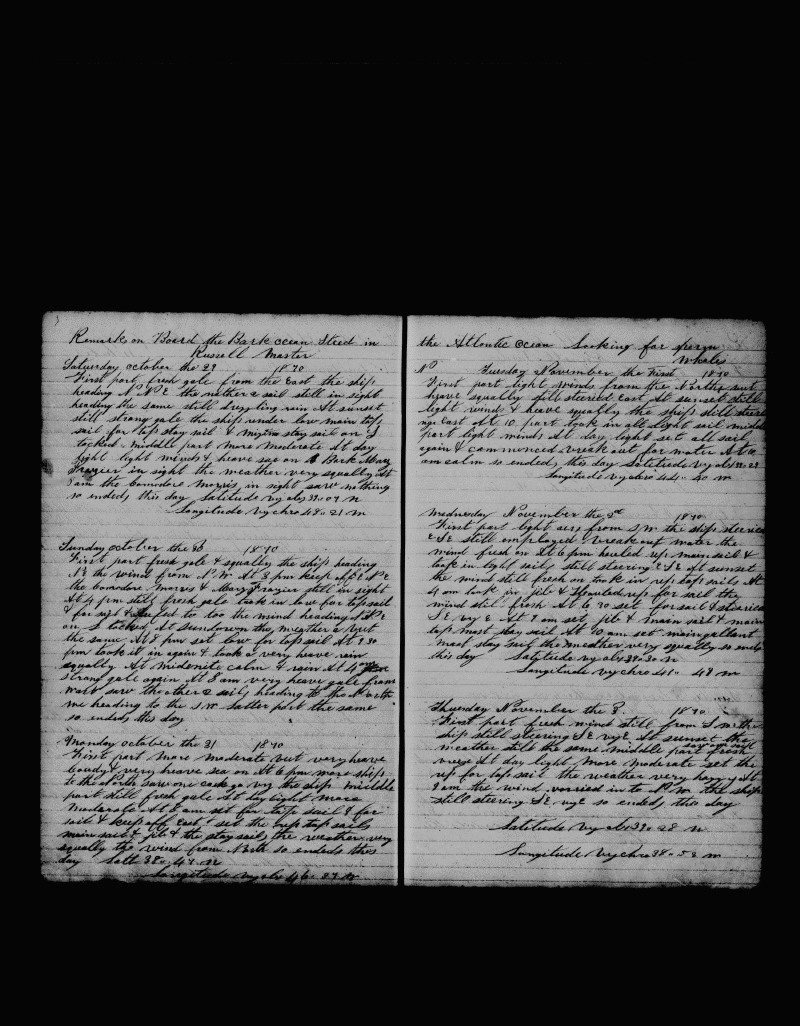 Remarks on Board the Bark ocean Steed in
Russell Master
Saturday october the 29 1870
First part fresh gale from the East the ship
heading N N E the mother 2 sail still in sight
heading the same still drizzling rain At sunset
still strong gale the ship under low main top
sail for top stay sail & stay sail on S
tacked middle part more moderate At day
light light winds & heave sea on Bark Mary
Frazier in sight the weather very squally At
8 am the Comodore Morris in sight saw nothing
so ended this day Latitude by obs 39.. 07 n
Longitude by chro 48.. 21 m
Sunday october the 30 1870
First part fresh gale & squally the ship heading
N E the wind from N W At 3 pm keep off E N E
the Comodore Morris & Mary Frazier still in sight
At 4 pm still fresh gale took in low for top sail
& for sail & to the wind heading N N E
on S tacked At sundown the weather a but
the same At 8 pm set low for top sail At 8 30
pm took it in again & took a very heave rain
squally At midenite calm & rain At 4
strong gale again At 8 am very heave gale from
saw the other 2 sails heading to the North
we heading to the S.W latter part the same
so ended this day
Monday october the 31 1870
First part more moderate but very heave
Cloudy & very heave sea on At 6 pm more ship
to the North saw one cask go by the ship middle
part still fresh gale At day light more
moderate At 8 am set for top sail & for
sail & keep off East set the up top sails
main sail & jib & the stay sails the weather very
squally the wind from North so ended this
day Latt 38.. 47 n
Longitude by chro 46.. 37 m
the Atlantic Ocean Looking for sperm
Whales
No Tuesday November the First 1870
First part light winds from the Norther but
heave squally still steered East At sunset still
light winds & heave squally the ship still steer
ing East At 10 part took in all light sail middle
part light winds At day light set all sail
again & commenced break out for water At 10
am calm so ended this day Latitude by obs 38.. 28
Longitude by chro 44.. 40 m
Wednesday November the 2nd 1870
First part light airs from S W the ship steering
E S E still employed break out water the
wind fresh on At 6 pm hauled up main sail &
took in light sails still steering E S E At sunset
the wind still fresh on took in up top sails At
4 am took in jib & hauled up for sail the
wind still fresh At 6 30 set for sail & steering
S E by E At 7 am set jib & main sail & main
top mast stay sail At 10 am set main gallant
mast stay sail the weather very squally so ended
this day Latitude by obs 38.. 30 n
Longitude by chro 41.. 48 m
Thursday November the 3. 1870
First part fresh wind still from S W the
ship still steering S E by E At sunset the
weather still the same middle part fresh
breeze At day light more moderate set the
up for top sail the weather very hazy At
8 am the wind in to N W the ship
still steering S E by E so ended this day
Latitude by obs 39.. 28 n
Longitude by chro 38.. 52 m